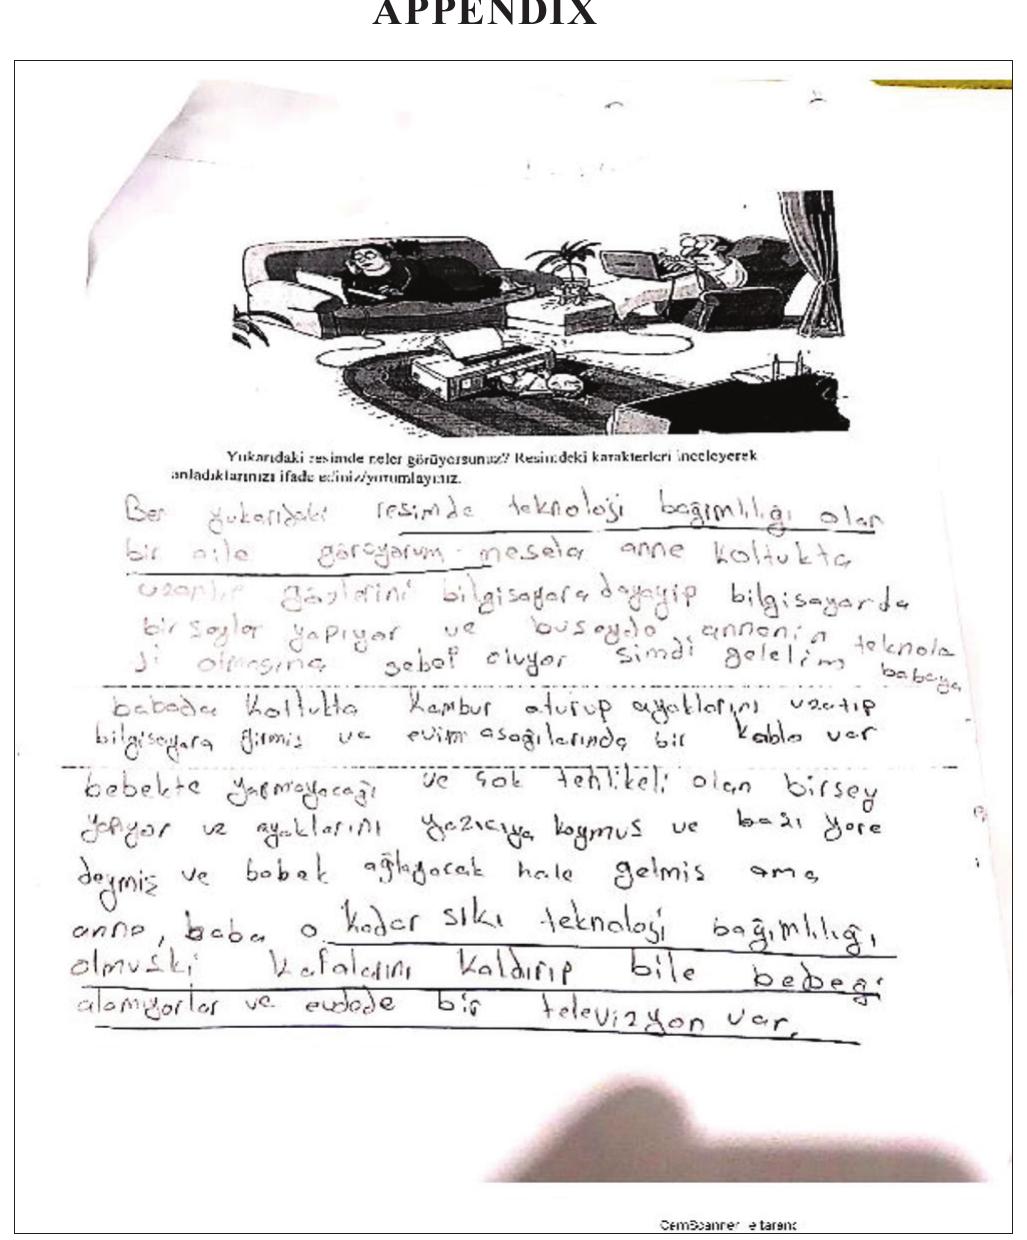 APPENDIX
Yukarıdaki resimde neler görüyorsunuz? Resimdeki karakterleri inceleyerek
anladıklarınızı ifade ediniz/yorumlayınız.
Ben yukarıdaki resimde teknoloji bağımlılığı olan
bir aile görüyorum. mesela anne koltukta
uzanıp gözlerini bilgisayara dayayıp bilgisayarda
bir şeyler yapıyor ve annenin teknolo
ji olmasına sebep oluyor şimdi gelelim babaya
babada koltukta kambur oturup ayaklarını uzatıp
bilgisayara girmiş ve evim aşağılarında bir kablo var
bebekte yapmayacağı ve çok tehlikeli olan birşey
yapıyor ve ayaklarını yazıcıya koymuş ve bazı yere
deymiş ve bebek ağlayacak hale gelmiş ama
anne, baba o kadar sıkı teknoloji bağımlılığı
olmuşki kafalarını kaldırıp bile bebeği
alamıyorlar ve evdede bir televizyon var.
CamScanner